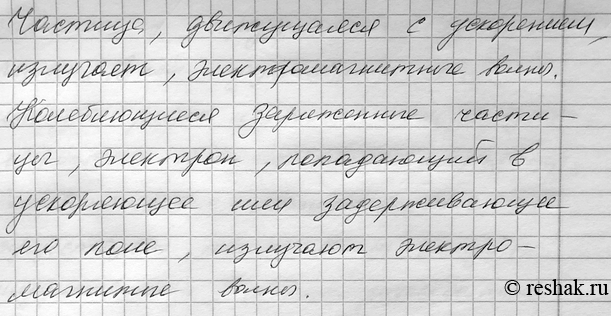 Частица, движущаяся с ускорением,
излучает, электромагнитные волны.
Колеблющиеся заряженные части-
цы, электрон, попадающий в
ускоряющее или задерживающее
его поле, излучают электро-
магнитные волны.
© reshak.ru